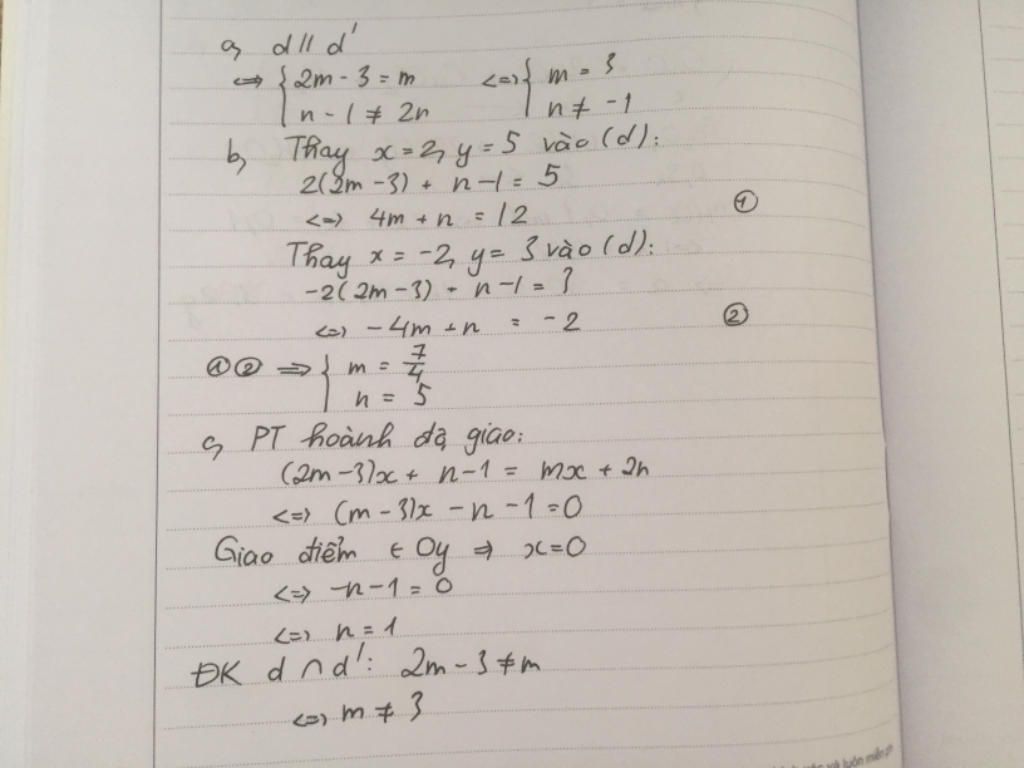 a, d // d'
<=> { 2m - 3 = m <=> { m = 3
n - 1 ≠ 2n n ≠ -1
b, Thay x = 2, y = 5 vào (d):
2(2m - 3) + n - 1 = 5
<=> 4m + n = 12 ①
Thay x = -2, y = 3 vào (d):
-2(2m - 3) + n - 1 = 3
<=> -4m + n = -2 ②
①② => { m = 7/4
n = 5
c, PT hoành độ giao:
(2m - 3)x + n - 1 = mx + 2n
<=> (m - 3)x - n - 1 = 0
Giao điểm ∈ Oy => x = 0
<=> -n - 1 = 0
<=> n = 1
ĐK d ∩ d': 2m - 3 ≠ m
<=> m ≠ 3